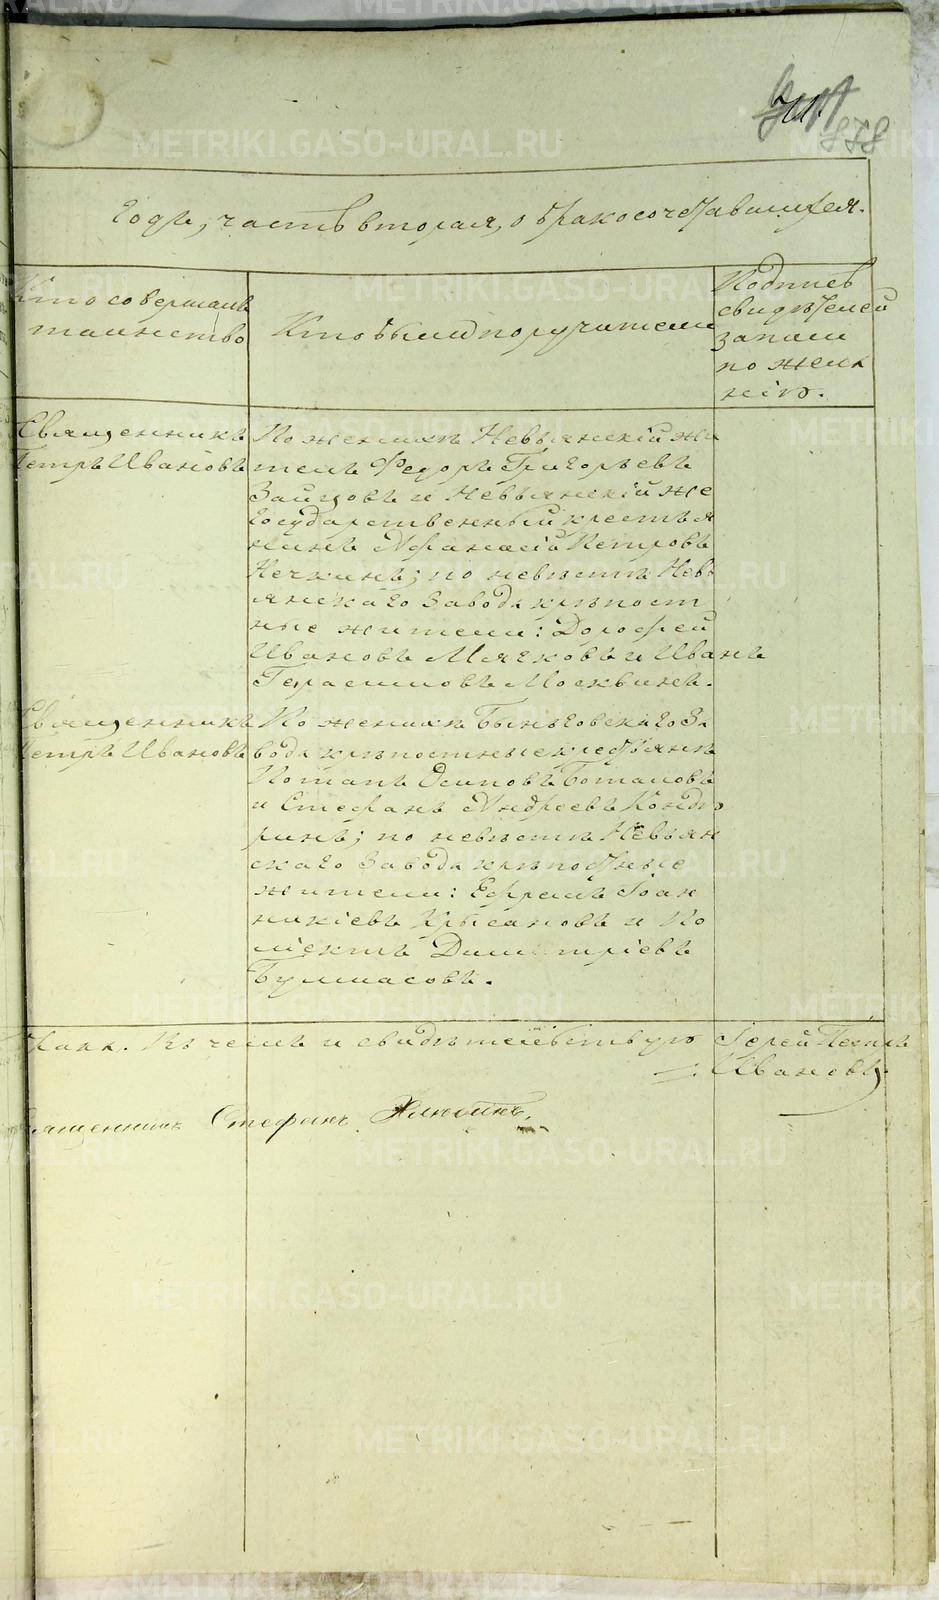 878
годъ, часть вторая, о бракосочетавшихся.
Кто совершалъ
таинство
Кто были поручители
Подпись
свидѣтелей
записи
по жела
нію.
Священникъ
Петръ Ивановъ
По женихѣ Невьянскій жи
тель Федоръ Григорьевъ
Зайцовъ и Невьянскій же
государственный крестья
нинъ Афанасій Петровъ
Нечкинъ; по невѣстѣ Невь
янскаго завода крѣпост
ные жители: Дорофей
Ивановъ Мячковъ и Иванъ
Герасимовъ Москвинъ.
Священникъ
Петръ Ивановъ
По женихѣ Быньговскаго за
вода крѣпостные крестьяне
Потапъ Осиповъ Боталовъ
и Стефанъ Андреевъ Кондю
ринъ; по невѣстѣ Невьян
скаго завода крѣпостные
жители: Ефремъ Іоан
никіевъ Крысановъ и По
ліектъ Димитріевъ
Булмасовъ.
Въ чемъ и свидѣтельствую Іерей Петръ
Ивановъ
Священникъ Стефанъ
METRIKI.GASO-URAL.RU